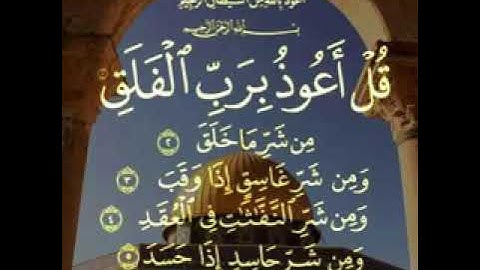 أعوذ بالله من الشيطان الرجيم
بسم الله الرحمن الرحيم
قُلۡ أَعُوذُ بِرَبِّ ٱلۡفَلَقِ ١
مِن شَرِّ مَا خَلَقَ ٢
وَمِن شَرِّ غَاسِقٍ إِذَا وَقَبَ ٣
وَمِن شَرِّ ٱلنَّفَّٰثَٰتِ فِي ٱلۡعُقَدِ ٤
وَمِن شَرِّ حَاسِدٍ إِذَا حَسَدَ ٥